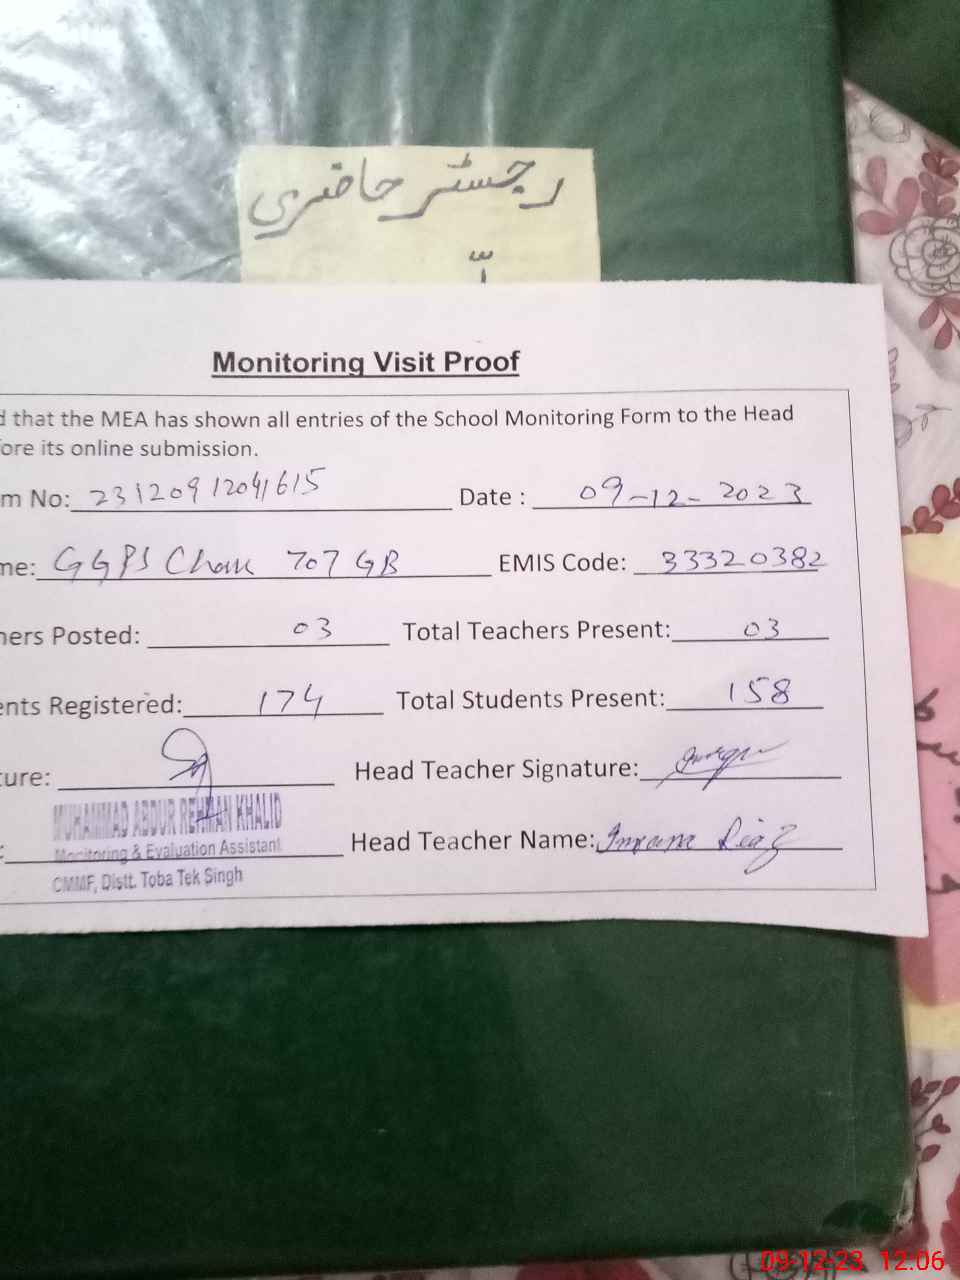 رجسٹر حاضری
Monitoring Visit Proof
that the MEA has shown all entries of the School Monitoring Form to the Head
ore its online submission.
m No: 23120912041615 Date : 09-12-2023
me: GGPS Chak 707 GB EMIS Code: 33320382
hers Posted: 03 Total Teachers Present: 03
ents Registered: 174 Total Students Present: 158
ture: Head Teacher Signature:
MUHAMMAD ABDUR REHMAN KHALID
Monitoring & Evaluation Assistant
CMMF, Distt. Toba Tek Singh
Head Teacher Name: Imrana Riaz
09-12-23 12:06